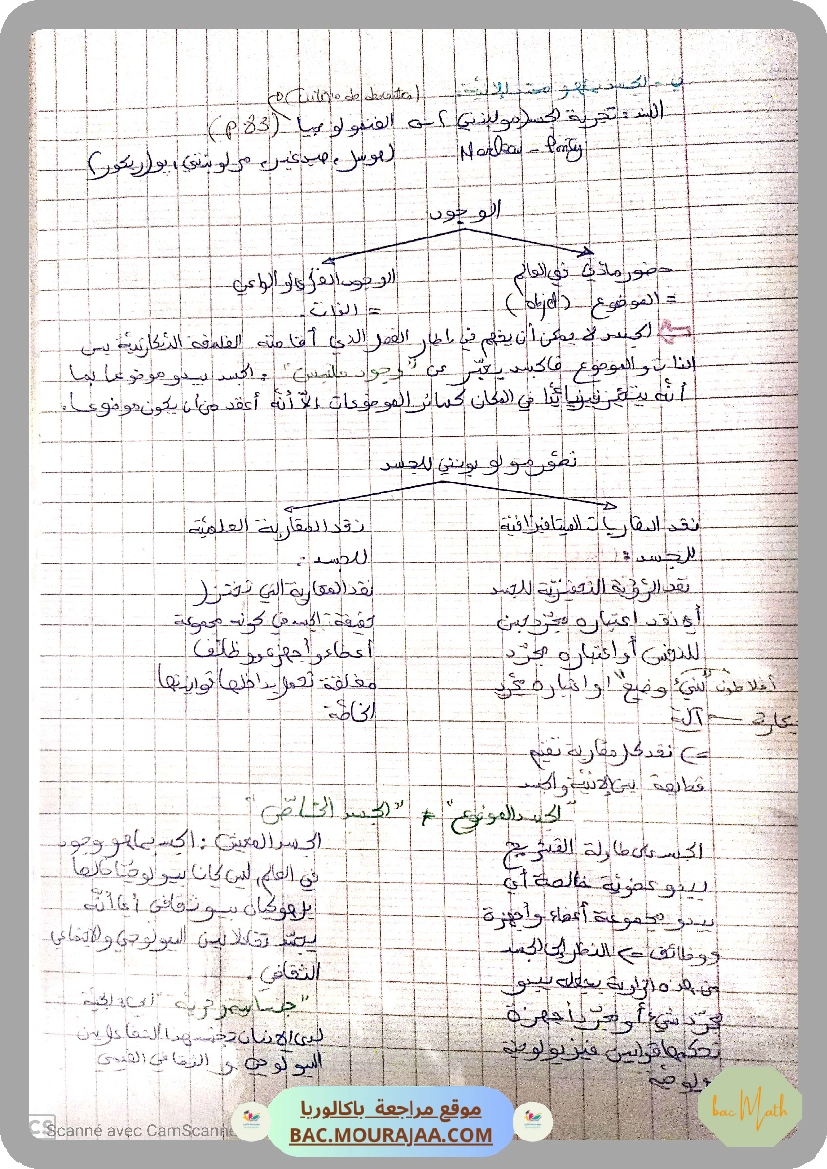 ب - الجسد بما هو معبر للإنية
السند: تجربة الجسد (مرلوبنتي) → الفنمنولوجيا (P 83)
(هوسرل، هيدغير، مرلوبنتي، بول ريكور) Merleau - Ponty
الوجود
حضور مادي في العالم
= الموضوع (objet)
الوجود الفكري أو الواعي
= الذات.
الجسد لا يمكن أن يفهم في إطار الفصل الذي أقامته الفلسفة الديكارتية بين
الذات والموضوع فالجسد يعبّر عن "وجود ملتبس". الجسد يبدو موضوعا بما
أنه يتحيز فيزيائيا في المكان كسائر الموضوعات إلا أنه أعقد من أن يكون موضوعا.
تصور مرلوبونتي للجسد
نقد المقاربات الميتافيزيقية
للجسد:
نقد الرؤية التحقيرية للجسد
أي نقد اعتباره مجرد سجن
للنفس أو اعتباره مجرد
أفلاطون "شيء وضيع" أو اعتباره مجرد
آلة ← ديكارت
=> نقد كل مقاربة تقيم
قطيعة بين الإنية والجسد
نقد المقاربة العلمية
للجسد:
نقد المقاربة التي تختزل
حقيقة الجسد في كونه مجموعة
أعضاء وأجهزة ووظائف
مغلقة تعمل بداخلها قوانينها
الخاصة
"الجسد الموضوع" ≠ "الجسد الخاص"
الجسد على طاولة التشريح
يبدو عضوية خالصة أي
يبدو مجموعة أعضاء وأجهزة
ووظائف => النظر إلى الجسد
من هذه الزاوية يجعله يبدو
مجرد شيء أو مجرد أجهزة
تحكمها قوانين فيزيولوجية
الجسد المعيش: الجسد بما هو وجود
في العالم، ليس كيانا بيولوجيا خالصا
بل هو كيان بيوثقافي أي أنه
يجسّد تفاعلا بين البيولوجي والاجتماعي
الثقافي.
لدى الإنسان يجسد هذا التفاعل بين
البيولوجي و الثقافي القيمي
Scanné avec CamScanner
موقع مراجعة باكالوريا
BAC.MOURAJAA.COM
bac Math